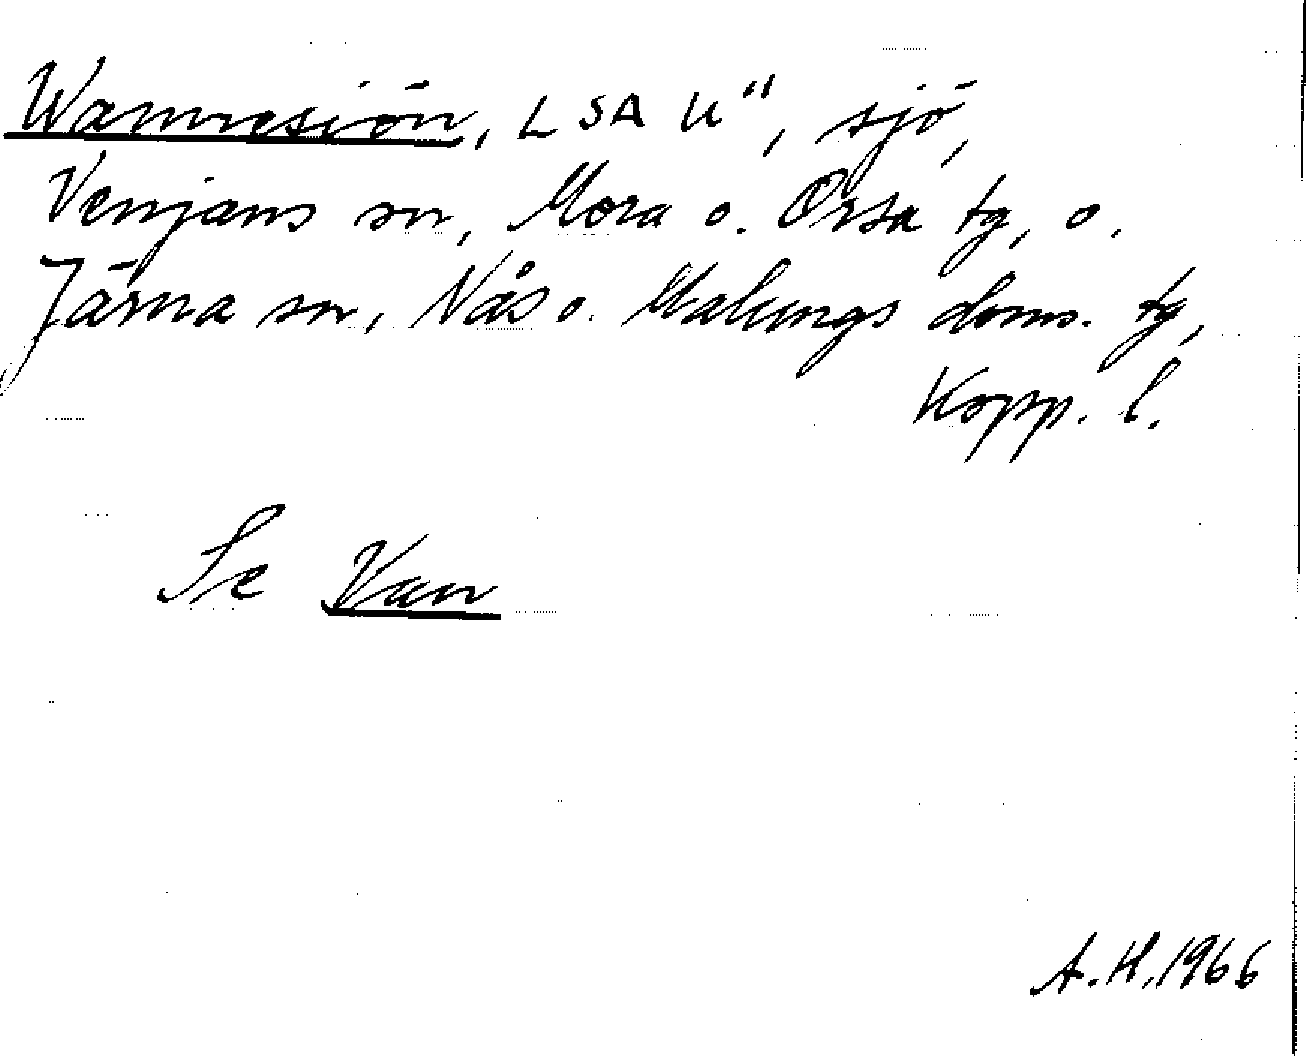 Wannesiön, LSA U", sjö,
Venjans sn, Mora o. Orsa tg, o.
Järna sn, Nås o. Malungs doms. tg,
Kopp. l.
Se Van
A.H. 1966